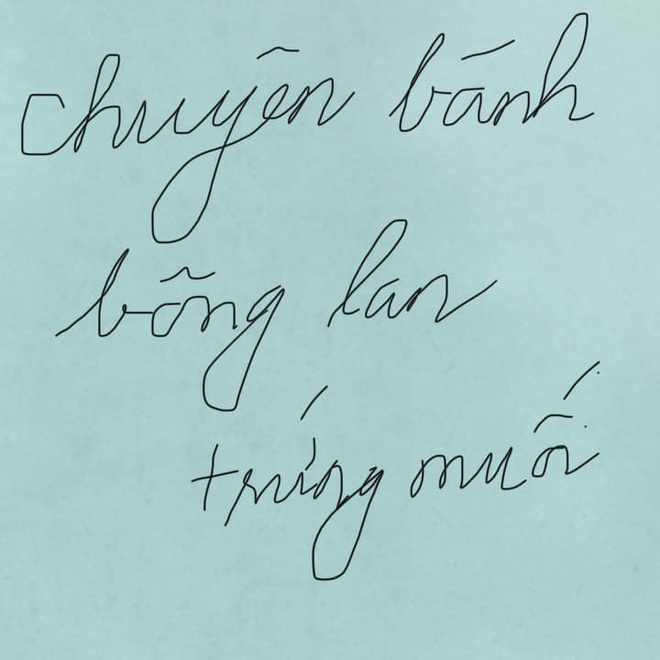 chuyên bánh
bông lan
trứng muối